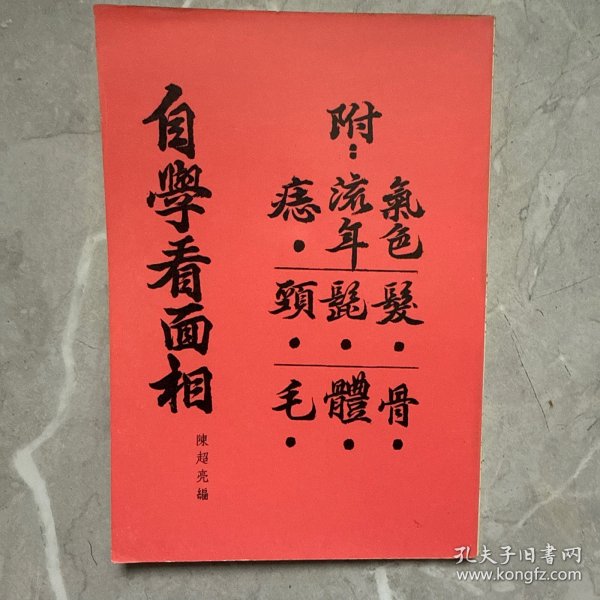 附：
氣色 流年 痣·
髮· 髭· 頸·
骨· 體· 毛·
自學看面相
陳超亮編
孔夫子旧书网
www.kongfz.com